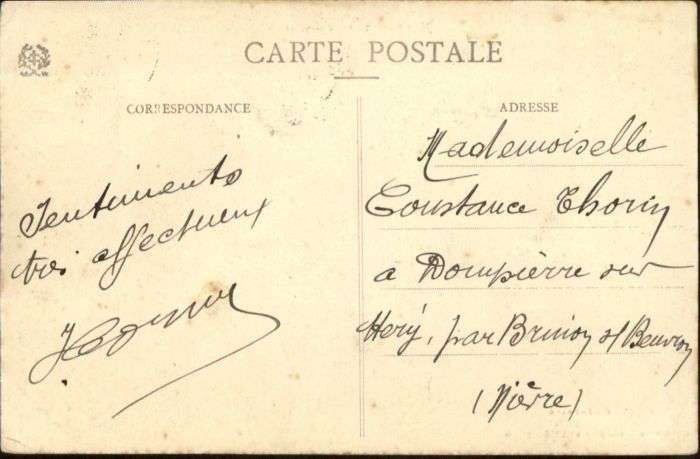 CARTE POSTALE
CORRESPONDANCE
Sentiments
très affectueux
ADRESSE
Mademoiselle
Constance Thorin
à Dompierre sur
Héry, par Brinon s/ Beuvron
(Nièvre)